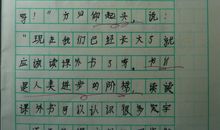 ！”仰起头，说：
“现在我们已经长大了就
应该读课外书了呀。书
是人类进步的阶梯，读读
课外书可以认识很多文字